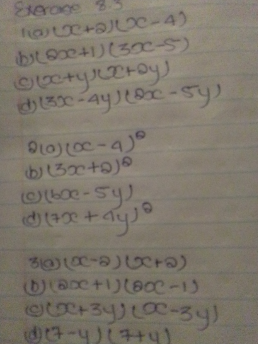 Exercise 3.3
1(a)(x+2)(x-4)
b)(2x+1)(3x-5)
c)(x+y)(x+2y)
d)(3x-4y)(2x-5y)
2(a)(x-4)²
b)(3x+2)²
(c)(6x-5y)
(d)(7x+4y)²
3(a)(x-2)(x+2)
(b)(2x+1)(2x-1)
(c)(x+3y)(x-3y)
(d)(7-y)(7+y)